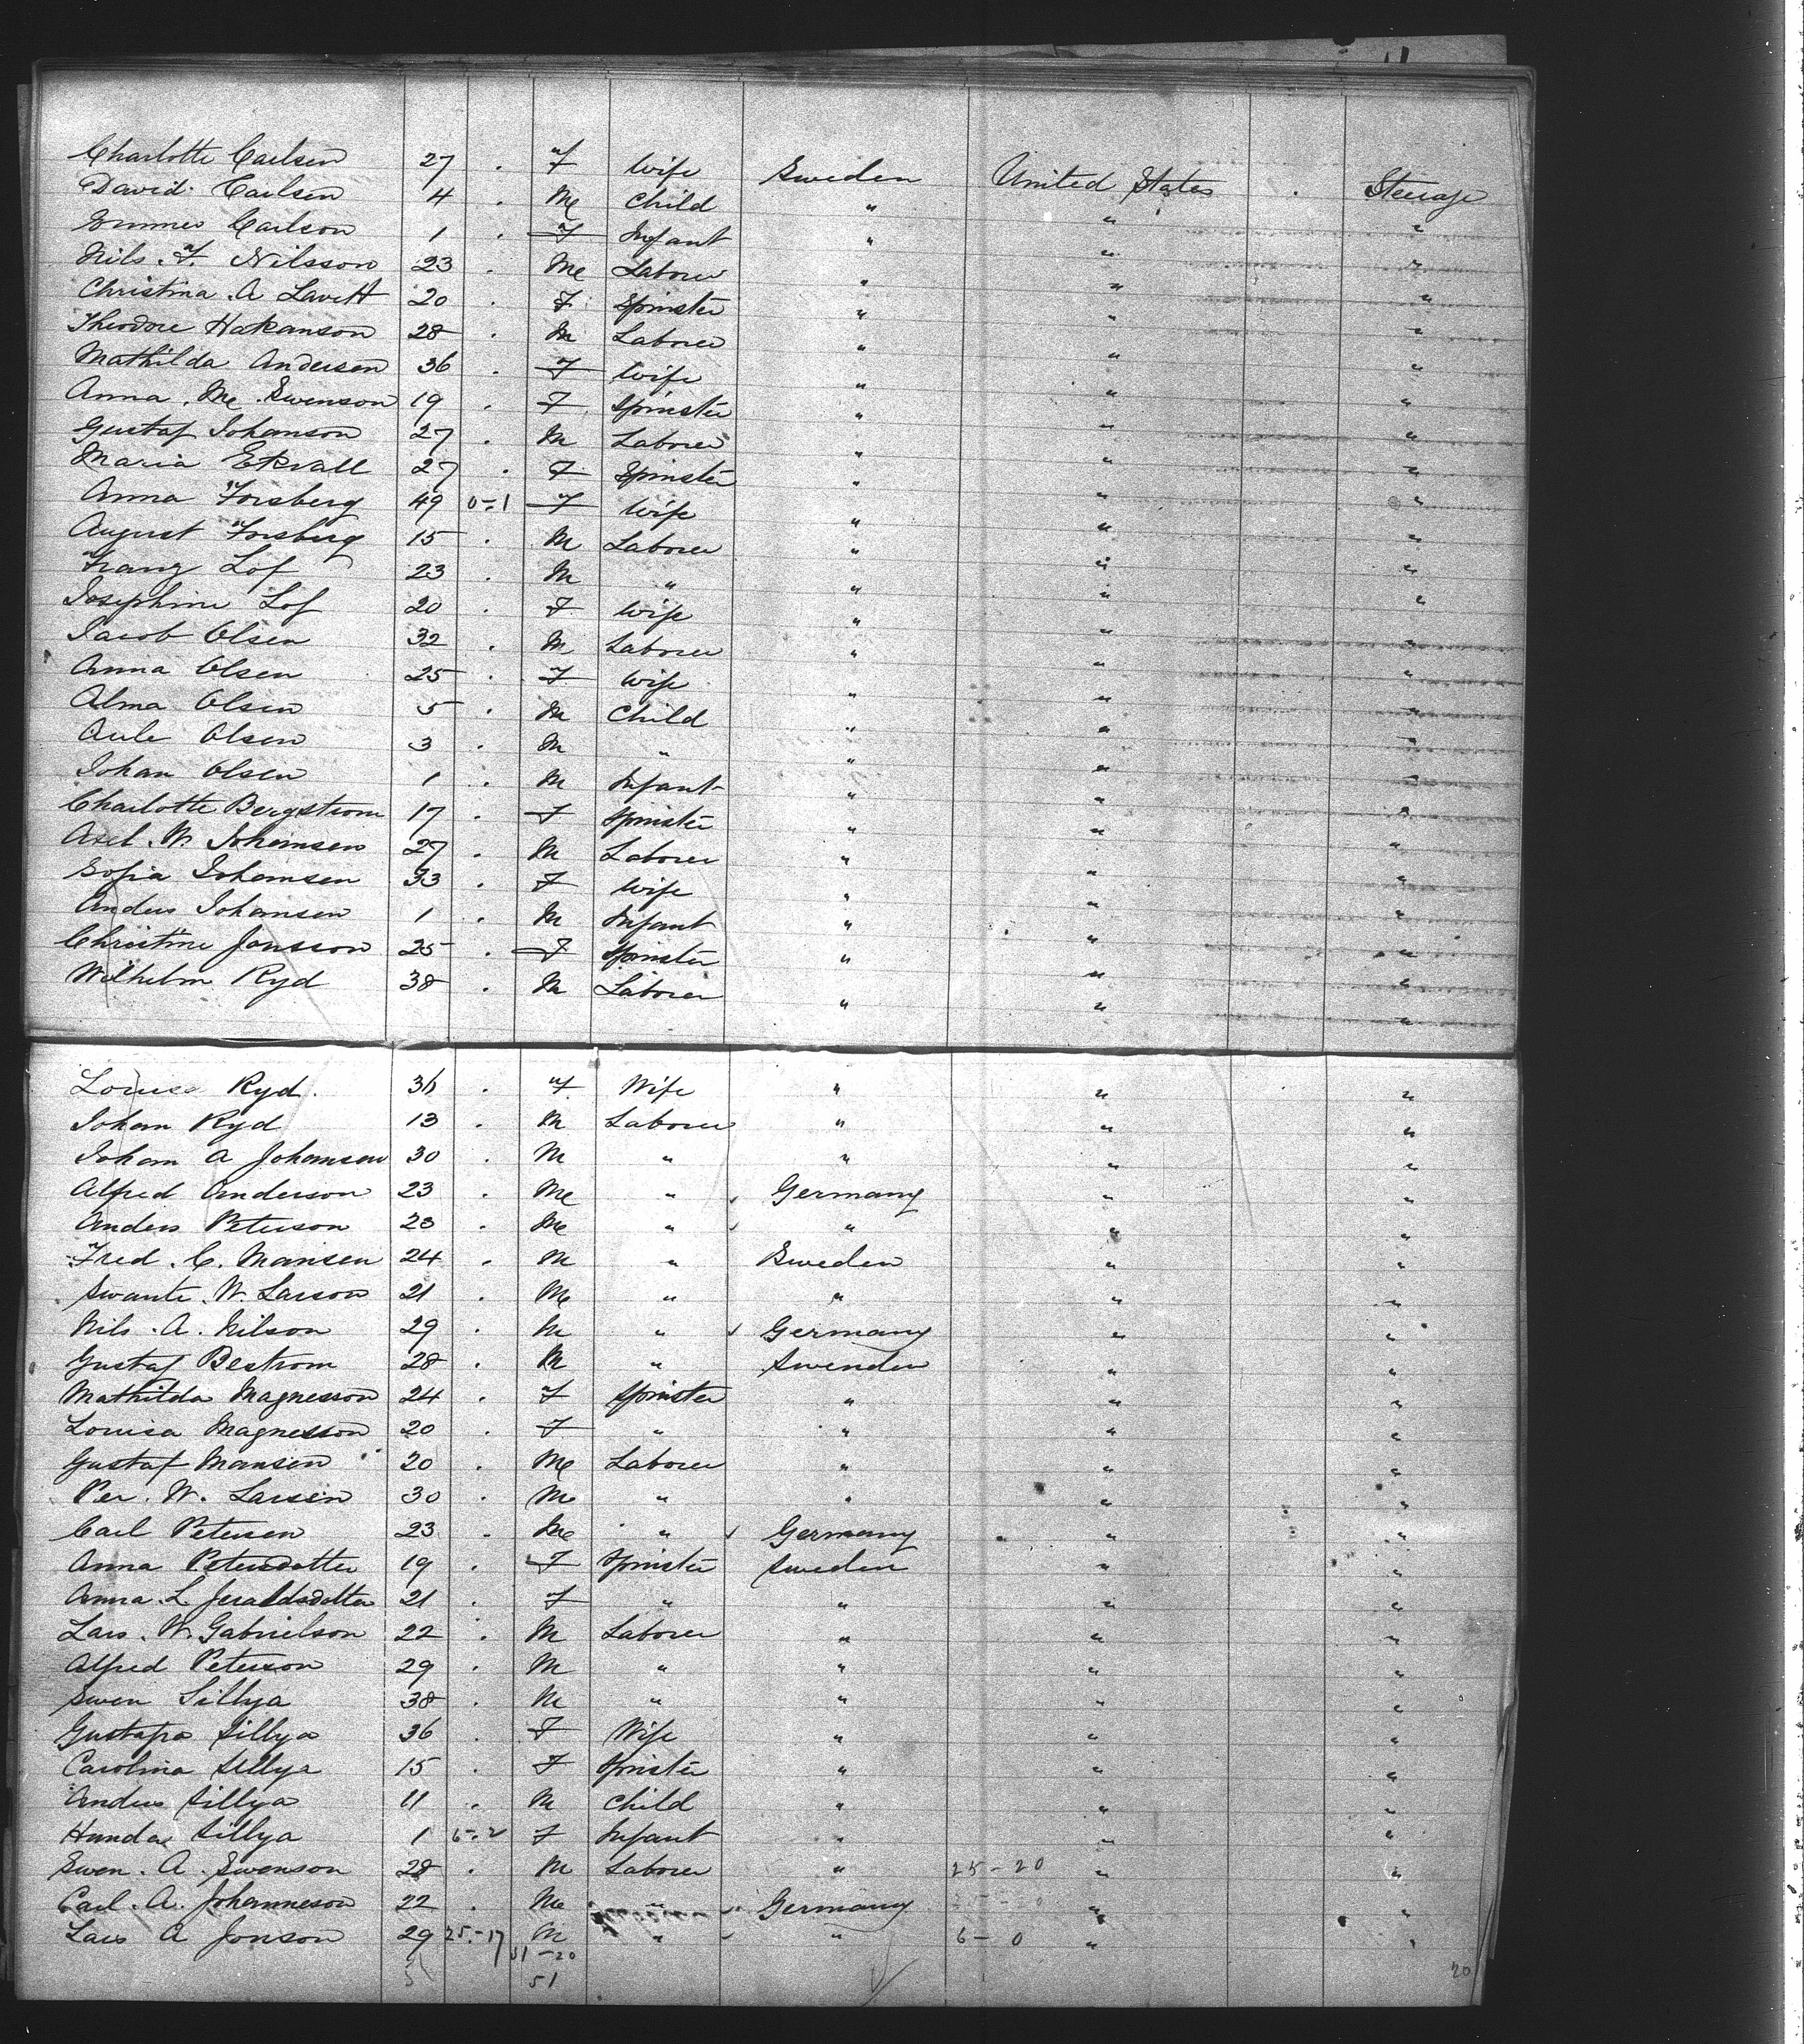 Charlotte Carlsen 27 . F Wife Sweden United States . Steerage
David Carlsen 4 . M Child " " "
Emmer Carlson 1 . F Infant " " "
Nils. F. Nilsson 23 . M Laborer " " "
Christina. A Lavett 20 . F Spinster " " "
Theodore Hakanson 28 . M Laborer " " "
Mathilda Andersen 36 . F Wife " " "
Anna. M. Swenson 19 . F Spinster " " "
Gustaf Johanson 27 . M Laborer " " "
Maria Ekvall 27 . F Spinster " " "
Anna Forsberg 49 0-1 F Wife " " "
August Forsberg 15 . M Laborer " " "
Franz Lof 23 . M " " " "
Josephine Lof 20 . F Wife " " "
Jacob Olsen 32 . M Laborer " " "
Anna Olsen 25 . F Wife " " "
Alma Olsen 5 . M Child " " "
Aule Olsen 3 . M " " " "
Johan Olsen 1 . M Infant " " "
Charlotte Bergstrom 17 . F Spinster " " "
Axel. W. Johansen 27 . M Laborer " " "
Sofia Johansen 33 . F Wife " " "
Anders Johansen 1 . M Infant " " "
Christine Jonsson 25 . F Spinster " " "
Wilhelm Ryd 38 . M Laborer " " "
Louise Ryd. 36 . F Wife " " "
Johan Ryd 13 . M Laborer " " "
Johan A Johansen 30 . M " " " "
Alfred Anderson 23 . M " Germany " "
Anders Peterson 23 . M " " " "
Fred. C. Mansen 24 . M " Sweden " "
Swante. W. Larson 21 . M " " " "
Nils. A. Nilson 29 . M " Germany " "
Gustaf Bestrom 28 . M " Swenden " "
Mathilda Magnesson 24 . F Spinster " " "
Louisa Magnesson 20 . F " " " "
Gustaf Mansen 20 . M Laborer " " "
Per. W. Larsen 30 . M " " " "
Carl Petersen 23 . M " Germany " "
Anna Petersdotter 19 . F Spinster Sweden " "
Anna. L. 21 . F " " " "
Lars. W. Gabrielson 22 . M Laborer " " "
Alfred Peterson 29 . M " " " "
Swen Sillya 38 . M " " " "
Gustafa Sillya 36 . F Wife " " "
Carolina Sillya 15 . F Spinster " " "
Anders Sillya 11 . M Child " " "
Handa Sillya 1 F Infant " " "
Swen. A. Swenson 28 . M Laborer " 25-20 " "
Carl. A. Johanneson 22 . M " Germany " "
Lars A Jonson 29 25-17 M " " 6-0 " "
31-20
51 51 20